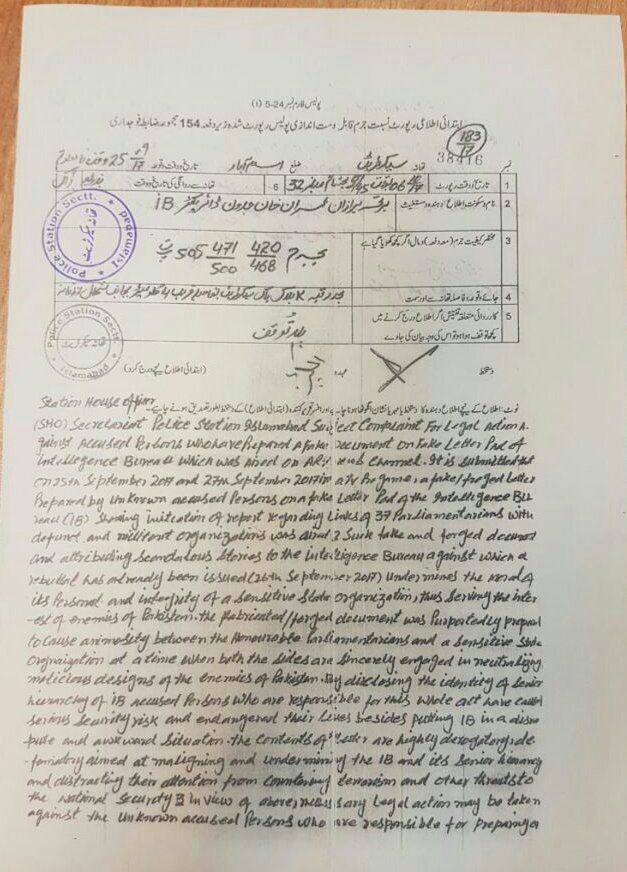 پولیس فارم نمبر 24-5 (i)
ابتدائی اطلاعی رپورٹ نسبت جرم قابل دست اندازی پولیس رپورٹ شدہ زیر دفعہ 154 مجموعہ ضابطہ فوجداری
183/17
38416
نمبر تھانہ سیکرٹریٹ ضلع اسلام آباد تاریخ و وقت وقوعہ 25 09/17
1 تاریخ و وقت رپورٹ 6 تھانہ سے روانگی کی تاریخ و وقت
2 نام و سکونت اطلاع دہندہ و مستغیث iB
3 مختصر کیفیت جرم (معہ دفعہ) و مال اگر کچھ کھو گیا ہے بجرم 420/468 471/500 505 ت پ
4 جائے وقوعہ و فاصلہ تھانہ سے اور سمت
5 کارروائی متعلقہ تفتیش اگر اطلاع درج کرنے میں
کچھ توقف ہوا ہو تو اس کی وجہ بیان کی جاوے بلا توقف
Police Station Sectt. Islamabad
تھانہ سیکرٹریٹ
Police Station Sectt. Islamabad
تھانہ سیکرٹریٹ
دستخط عہدہ (ابتدائی اطلاع نیچے درج کرو)
Station House officer
(SHO) Secretariat Police Station Islamabad Subject Complaint For Legal Action A-
gainst Accused Persons who have Prepared A fake Document on Fake Letter Pad of
Intellegence Bureau which was aired on ARY news channel. It is submitted that
on 25th September 2017 and 27th September 2017 in a Tv Programe, a fake/forged letter
Prepared by Unknown accused Persons on a fake Letter Pad of the Intelligence Bu
reau (IB) Showing initication of report regarding Links of 37 Parliamentarians with
defunct and militant organizations was aired 2 Such fake and forged document
and attributing Scandalous Stories to the intelligence Bureau against which a
rebuttal has already been issued (26th September 2017) Undermines the moral of
its Personal and integrity of a Sensitive State organization, thus Serving the inter
-est of enemies of Pakistan. the fabricated/forged document was Purportedly prepared
to Cause animosity between the Honourable Parliamentarians and a sensitive State
Orgnaigation at a time when both the sides are Sincerely engaged in neutralizing
malicious designs of the enemies of Pakistan. By disclosing the identity of Senior
hierarchy of IB accused Persons who are responsible for this whole act have caused
Serious Security risk and endangered their Lives besides putting IB in a disre
pute and awkward Situation. the Contents of Letter are highly derogatory, de
-famatory aimed at maligning and undermining the IB and its Senior hierarchy
and distracting their attention from Countering terrorism and other threats to
the National Security 3 In view of above necessary Legal action may be taken
against the Unknown accused Persons who are responsible for preparing a